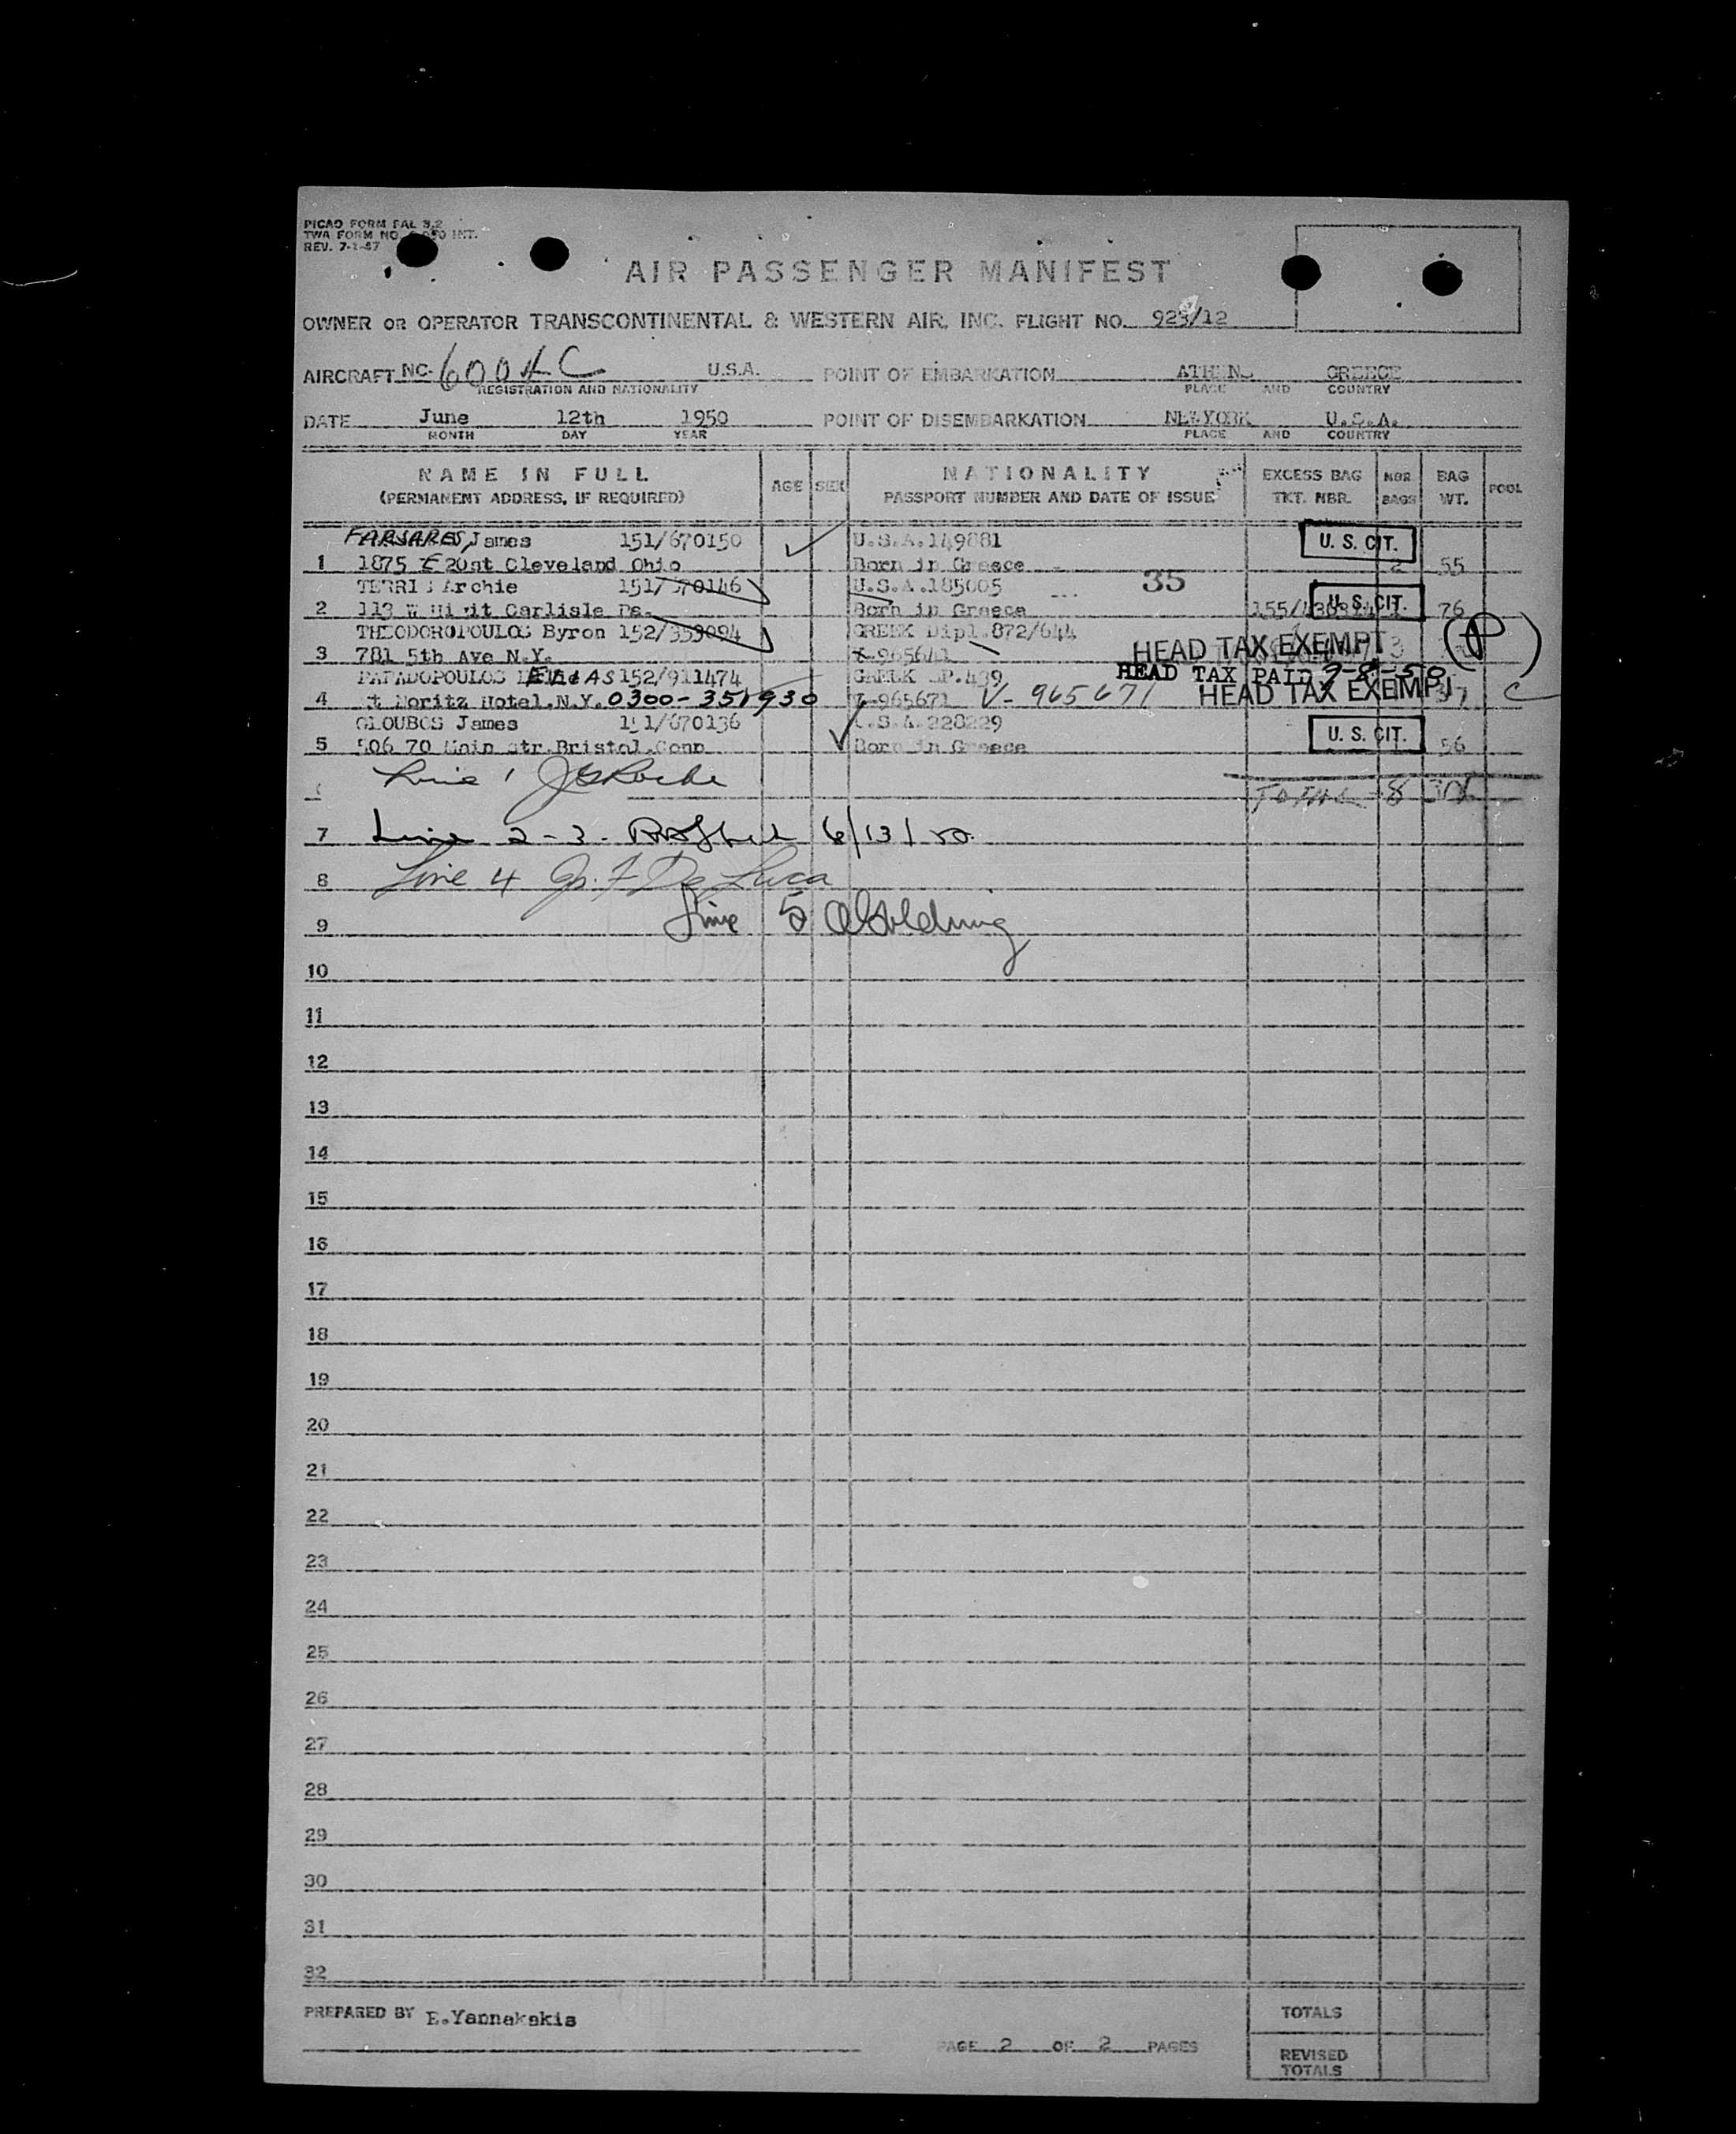 PICAO FORM FAL 3.2
TWA FORM NO. INT.
REV. 7-1-47
AIR PASSENGER MANIFEST
OWNER OR OPERATOR TRANSCONTINENTAL & WESTERN AIR, INC. FLIGHT NO. 923/12
AIRCRAFT NC- 6004C U.S.A. POINT OF EMBARKATION ATHENS GREECE
REGISTRATION AND NATIONALITY PLACE AND COUNTRY
DATE June 12th 1950 POINT OF DISEMBARKATION NEWYORK U.S.A.
MONTH DAY YEAR PLACE AND COUNTRY
NAME IN FULL AGE SEX NATIONALITY EXCESS BAG NBR BAG POOL
(PERMANENT ADDRESS, IF REQUIRED) PASSPORT NUMBER AND DATE OF ISSUE TKT. NBR. BAGS WT.
FARSARES, James 151/670150 U.S.A.149881 U. S. CIT.
1 1875 E 20st Cleveland Ohio Born in Greece 2 55
TERRIS Archie 151/570146 U.S.A.185005 35 U. S. CIT.
2 113 W Carlisle Pa. Born in Greece 76
THEODOROPOULOS Byron 152/359094 GREEK Dipl.872/644 HEAD TAX EXEMPT
3 781 5th Ave N.Y. 965641 3
PAPADOPOULOS ELIAS 152/911474 GREEK DP.439 HEAD TAX PAID 9-8-50
4 St Moritz Hotel.N.Y. 0300-351930 965671 V-965671 HEAD TAX EXEMPT C
GLOUBOS James 151/670136 U.S.A.228229 U. S. CIT.
5 506 70 Main str.Bristol.Conn Born in Greece 56
Line 1 JGRoche TOTAL 8
7 Line 2-3- 6/13/50
8 Line 4 De Luca
9 Line 5 Golding
10
11
12
13
14
15
16
17
18
19
20
21
22
23
24
25
26
27
28
29
30
31
32
PREPARED BY E.Yannakakis TOTALS
PAGE 2 OF 2 PAGES
REVISED TOTALS